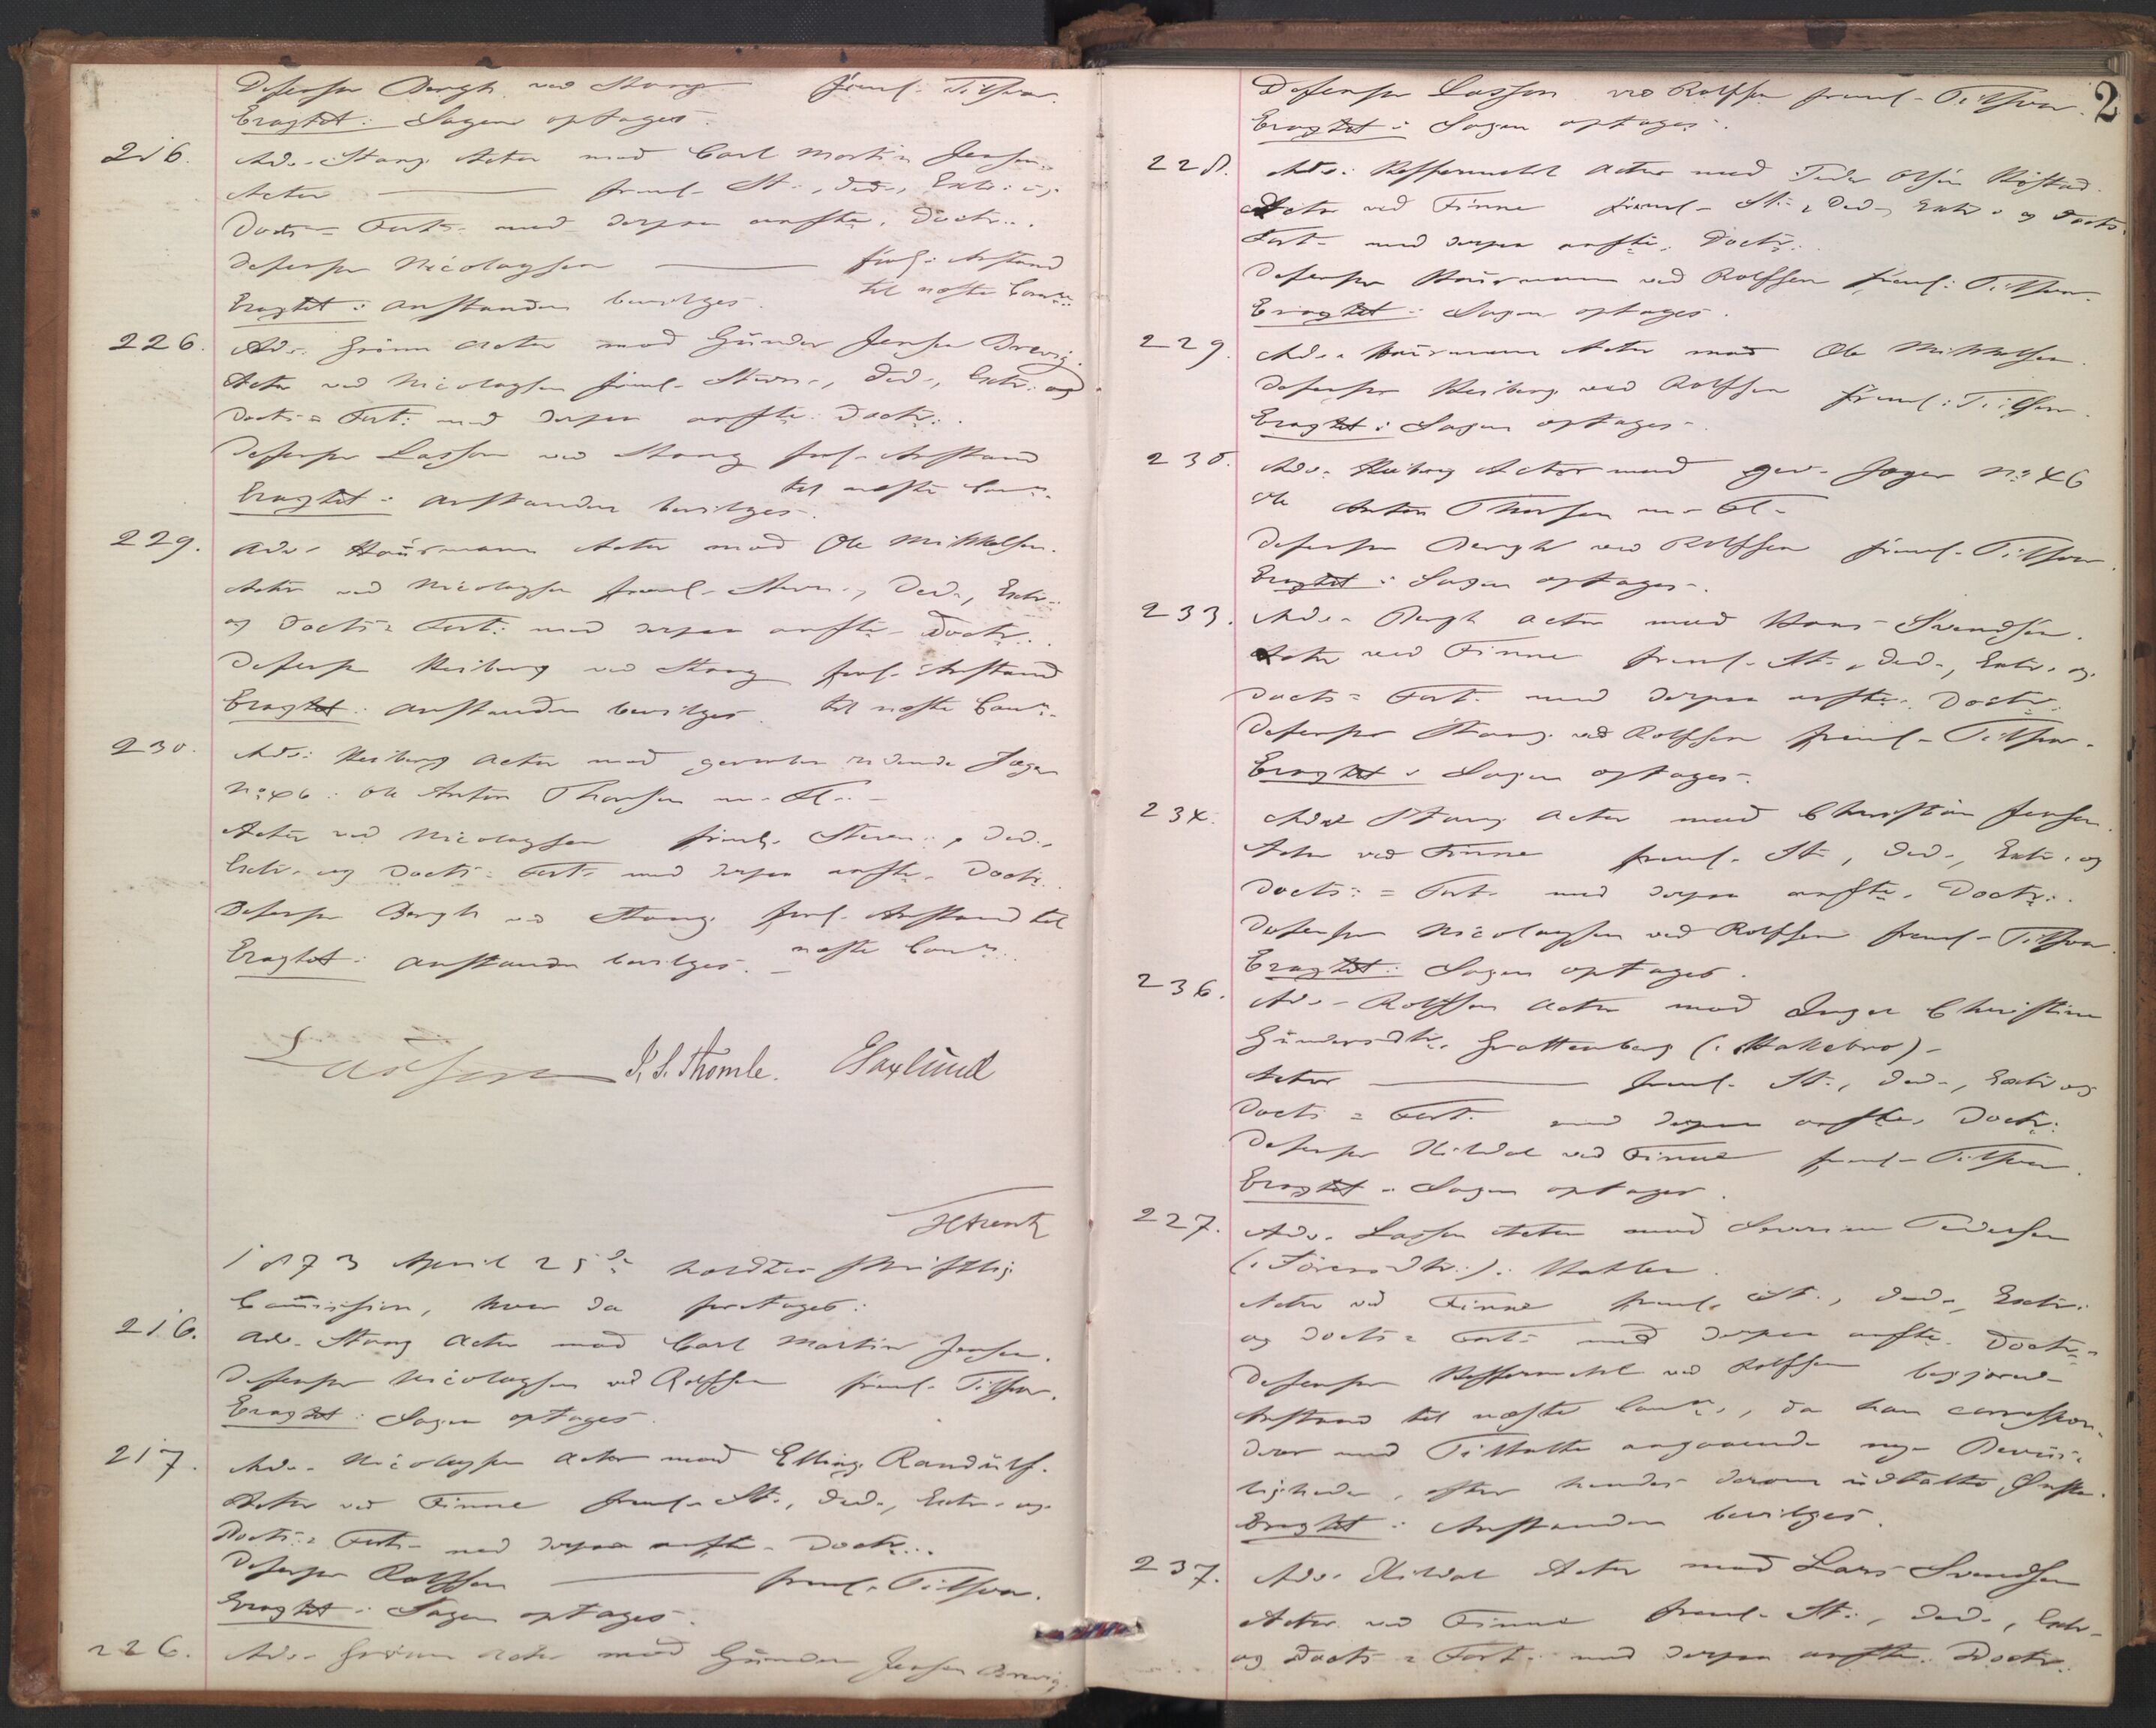 Defensor Bergh ved Stang freml. Tilsvar.
Eragtet: Sagen optages.
216. Adv. Stang Actor mod Carl Martin Jensen.
Actor freml. St., Ded., Extr. og
Docts = Fort. med derpaa anførte. Doctr.
Defensor Nicolaysen forl. Anstand
til næste Comm.
Eragtet: Anstanden bevilges.
226. Adv. Grönn Actor mod Gunder Jensen Brevig.
Actor ved Nicolaysen freml. Stevn., Ded., Extr. og
Docts = Fort. med derpaa anførte. Doctr.
Defensor Lasson ved Stang forl. Anstand
til næste Comm.
Eragtet: Anstanden bevilges.
229. Adv. Hourmann Actor mod Ole Mikkelsen.
Actor ved Nicolaysen freml. Stevn., Ded., Extr.
og Docts = Fort. med derpaa anførte. Doctr.
Defensor Heiberg ved Stang forl. Anstand
Eragtet: Anstanden bevilges. til næste Comm.
230. Adv. Heiberg Actor mod gevorben ridende Jæger
No 46: Ole Anton Thorsen m. Fl.
Actor ved Nicolaysen freml. Stevn., Ded.,
Extr. og Docts = Fort. med derpaa anførte. Doctr.
Defensor Bergh ved Stang forl. Anstand til
næste Comm.
Eragtet: Anstanden bevilges.
J. S. Thomle. E Saxlund
1873 April 25de holdtes skriftlig
Commission, hvor da foretages:
216. Adv. Stang Actor mod Carl Martin Jensen.
Defensor Nicolaysen ved Rolfsen freml. Tilsvar.
Eragtet: Sagen optages.
217. Adv. Nicolaysen Actor mod Elling Randulf.
Actor ved Finne freml. St., Ded., Extr. og
Docts = Fort. med derpaa anførte. Doctr.
Defensor Rolfsen freml. Tilsvar.
Eragtet: Sagen optages.
226. Adv. Grönn Actor mod Gunder Jensen Brevig.
2
Defensor Lasson ved Rolfsen freml. Tilsvar.
Eragtet: Sagen optages.
228. Adv. Actor mod Peder Olsen
Actor ved Finne freml. St., Ded., Extr. og Docts
Fort. med derpaa anførte. Doctr.
Defensor Hourmann ved Rolfsen freml. Tilsvar.
Eragtet: Sagen optages.
229. Adv. Hourmann Actor mod Ole Mikkelsen.
Defensor Heiberg ved Rolfsen freml. Tilsvar.
Eragtet: Sagen optages.
230. Adv. Heiberg Actor mod gev. Jæger No 46
Ole Anton Thorsen m. Fl.
Defensor Bergh ved Rolfsen freml. Tilsvar.
Eragtet: Sagen optages.
233. Adv. Bergh Actor mod Hans Svendsen.
Actor ved Finne freml. St., Ded., Extr. og
Docts = Fort. med derpaa anførte. Doctr.
Defensor Stang ved Rolfsen freml. Tilsvar.
Eragtet: Sagen optages.
234. Adv. Stang Actor mod Christian Jensen.
Actor ved Finne freml. St., Ded., Extr. og
Docts = Fort. med derpaa anførte. Doctr.
Defensor Nicolaysen ved Rolfsen freml. Tilsvar.
Eragtet: Sagen optages.
236. Adv. Rolfsen Actor mod Inger Christine
Gundersdtr. Grottenberg (: Hakebro)
Actor freml. St., Ded., Extr og
Docts = Fort. med derpaa anførte. Doctr.
Defensor Kildal ved Finne freml. Tilsvar.
Eragtet: Sagen optages.
227. Adv. Lasson Actor mod Severine Pedersen
Actor ved Finne freml. St., Ded., Extr.
og Docts = Fort. med derpaa anførte. Doctr.
Defensor ved Rolfsen begjærede
Anstand til næste Comm., da han correspon-
derer med Tiltalte angaaende nye Beviis-
ligheder, efter hendes derom udtalte Ønske.
Eragtet: Anstanden bevilges.
237. Adv. Kildal Actor mod Lars Svendsen
Actor ved Finne freml. St., Ded., Extr.
og Docts = Fort. med derpaa anførte. Doctr.